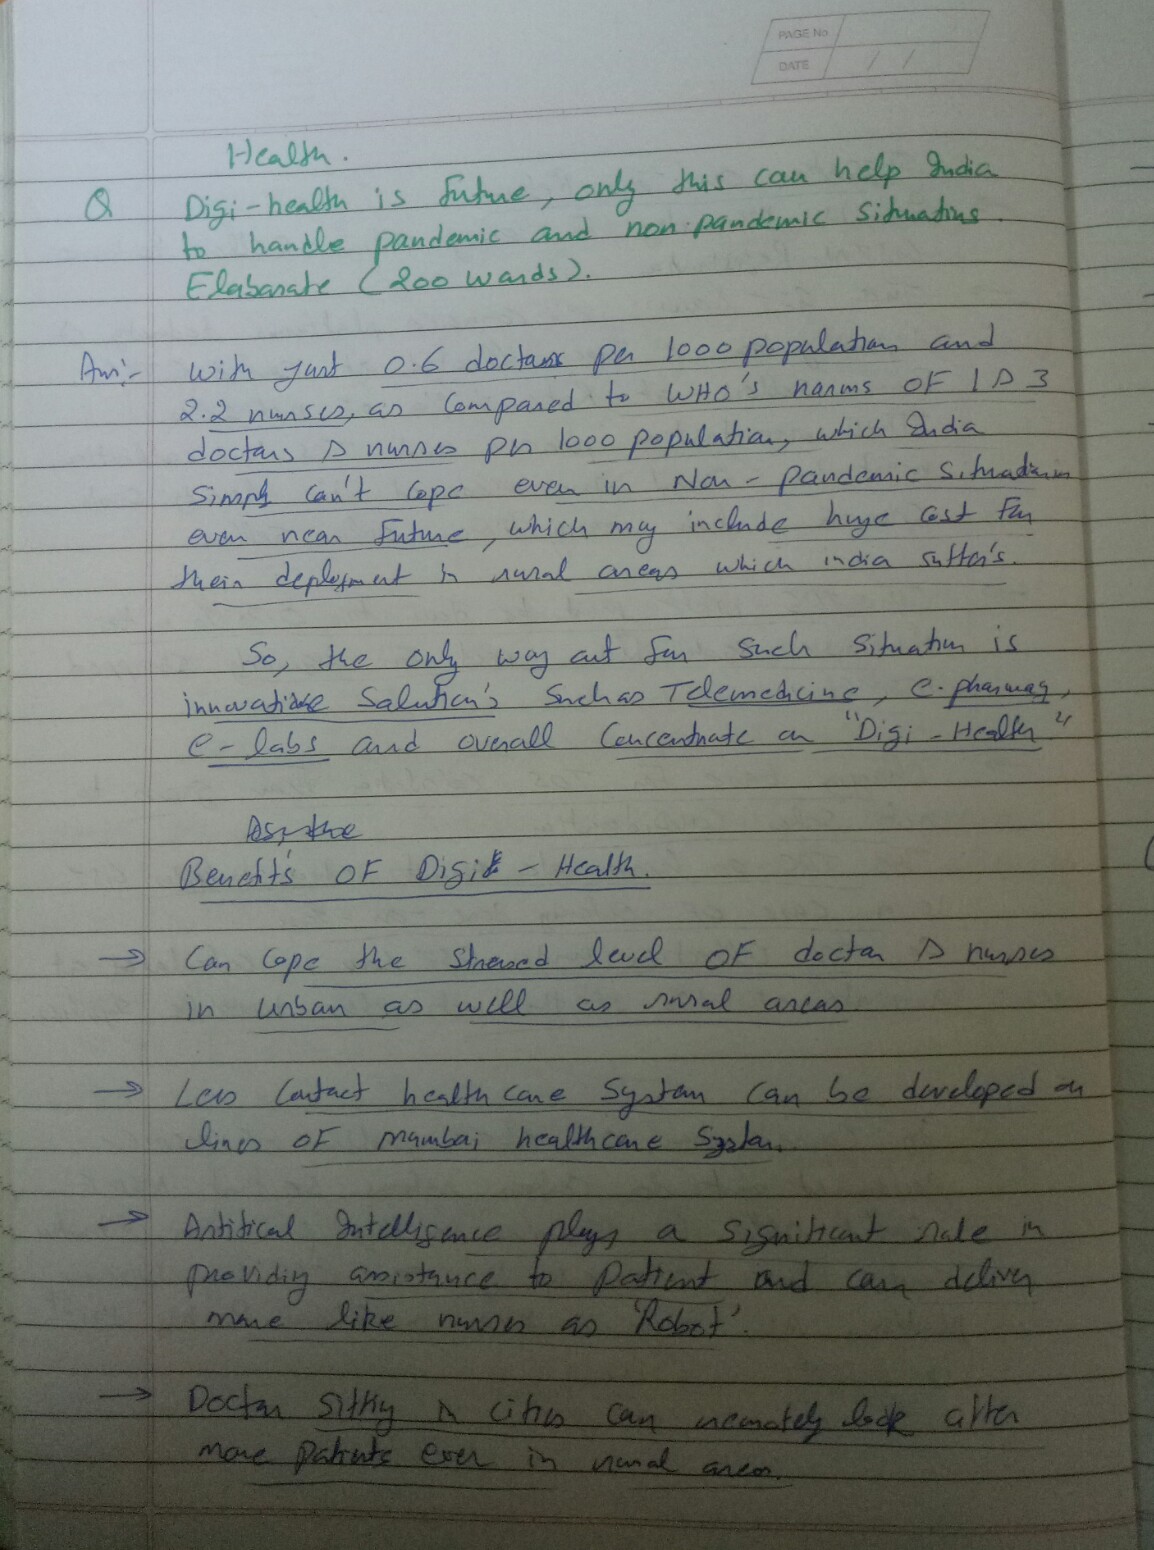 PAGE No
DATE / /
Health.
Q Digi-health is future, only this can help India
to handle pandemic and non-pandemic situations.
Elaborate (200 words).
Ans:- With just 0.6 doctors per 1000 population and
2.2 nurses, as compared to WHO's norms OF 1 & 3
doctors & nurses per 1000 population, which India
simply can't cope even in Non-pandemic situations
even near future, which may include huge cost for
their deployment in rural areas which india suffers.
So, the only way out for such situation is
innovative Solution's Such as Telemedicine, e-pharmacy,
e-labs and overall Concentrate on "Digi-Health"
As, the
Benefits OF Digi-Health.
→ Can cope the stressed level OF doctor & nurses
in urban as well as rural areas
→ Less Contact health care System can be developed on
lines OF mumbai healthcare System.
→ Artifical Intelligence plays a significant role in
providing assistance to patient and can deliver
more like nurses as 'Robot'.
→ Doctor sitting in cities can remotely look after
more patients even in rural areas.